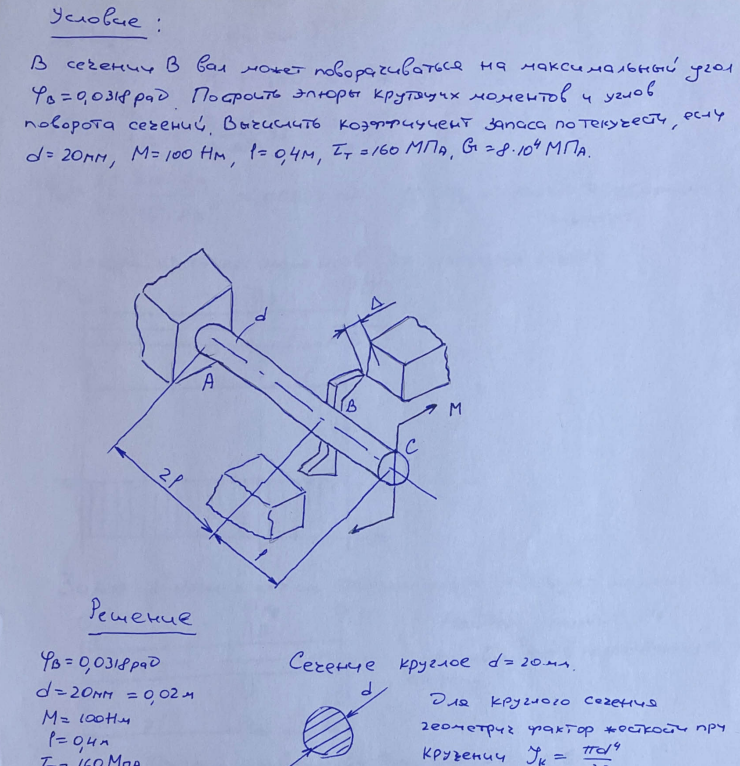 Условие:
В сечении В вал может поворачиваться на максимальный угол
φв = 0,0318 рад. Построить эпюры крутящих моментов и углов
поворота сечений. Вычислить коэффициент запаса по текучести, если
d = 20мм, М = 100 Нм, l = 0,4м, τт = 160 МПа, G = 8·10⁴ МПа.
Δ
d
A
B
M
C
2l
l
Решение
φв = 0,0318 рад
d = 20мм = 0,02м
М = 100Нм
l = 0,4м
τт = 160 МПа
Сечение круглое d = 20мм.
d
Для круглого сечения
геометрич фактор жесткости при
кручении Jк = πd⁴